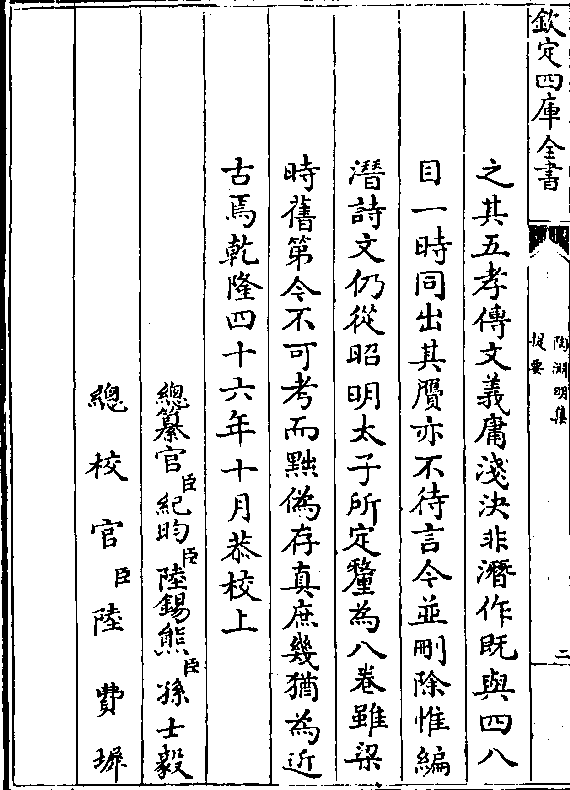 欽定四庫全書
陶淵明集
提要
二
之其五孝傳文義庸淺決非潛作既與四八
目一時同出其贋亦不待言今並刪除惟編
潛詩文仍從昭明太子所定釐為八卷雖梁
時舊第今不可考而黜偽存真庶幾猶為近
古焉乾隆四十六年十月恭校上
總纂官臣紀昀臣陸錫熊臣孫士毅
總校官臣陸費墀